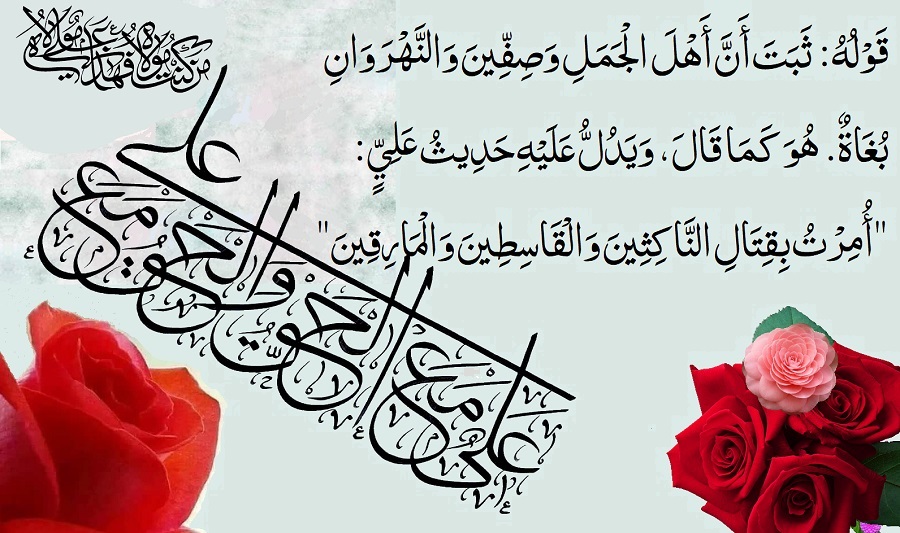 قَوْلُهُ: ثَبَتَ أَنَّ أَهْلَ الْجَمَلِ وَصِفِّينَ وَالنَّهْرَوَانِ
بُغَاةٌ. هُوَ كَمَا قَالَ، وَيَدُلُّ عَلَيْهِ حَدِيثُ عَلِيٍّ:
"أُمِرْتُ بِقِتَالِ النَّاكِثِينَ وَالْقَاسِطِينَ وَالْمَارِقِينَ"
من كنت مولاه فهذا علي مولاه
علي مع الحق والحق مع علي